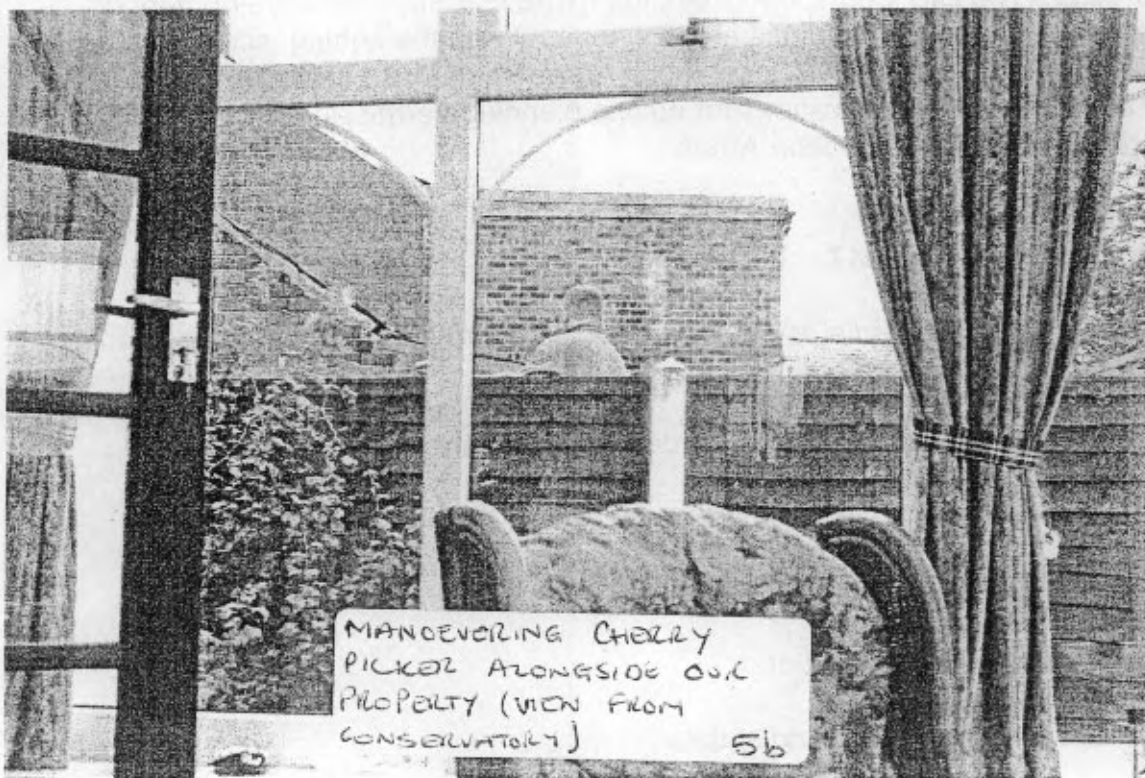 MANOEVERING CHERRY
PICKER ALONGSIDE OUR
PROPERTY (VIEW FROM
CONSERVATORY)
5b